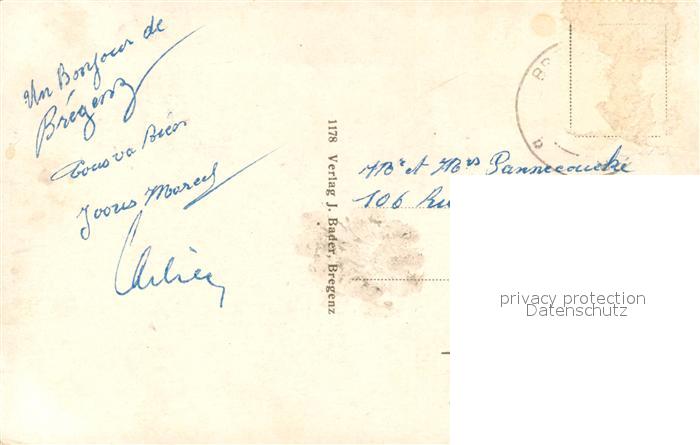 Un Bonjour de
Brégenz
Tous va bien
Marcel
1178 Verlag J. Bader, Bregenz
Mr et Mrs Pannecoucke
106 Ru
privacy protection
Datenschutz